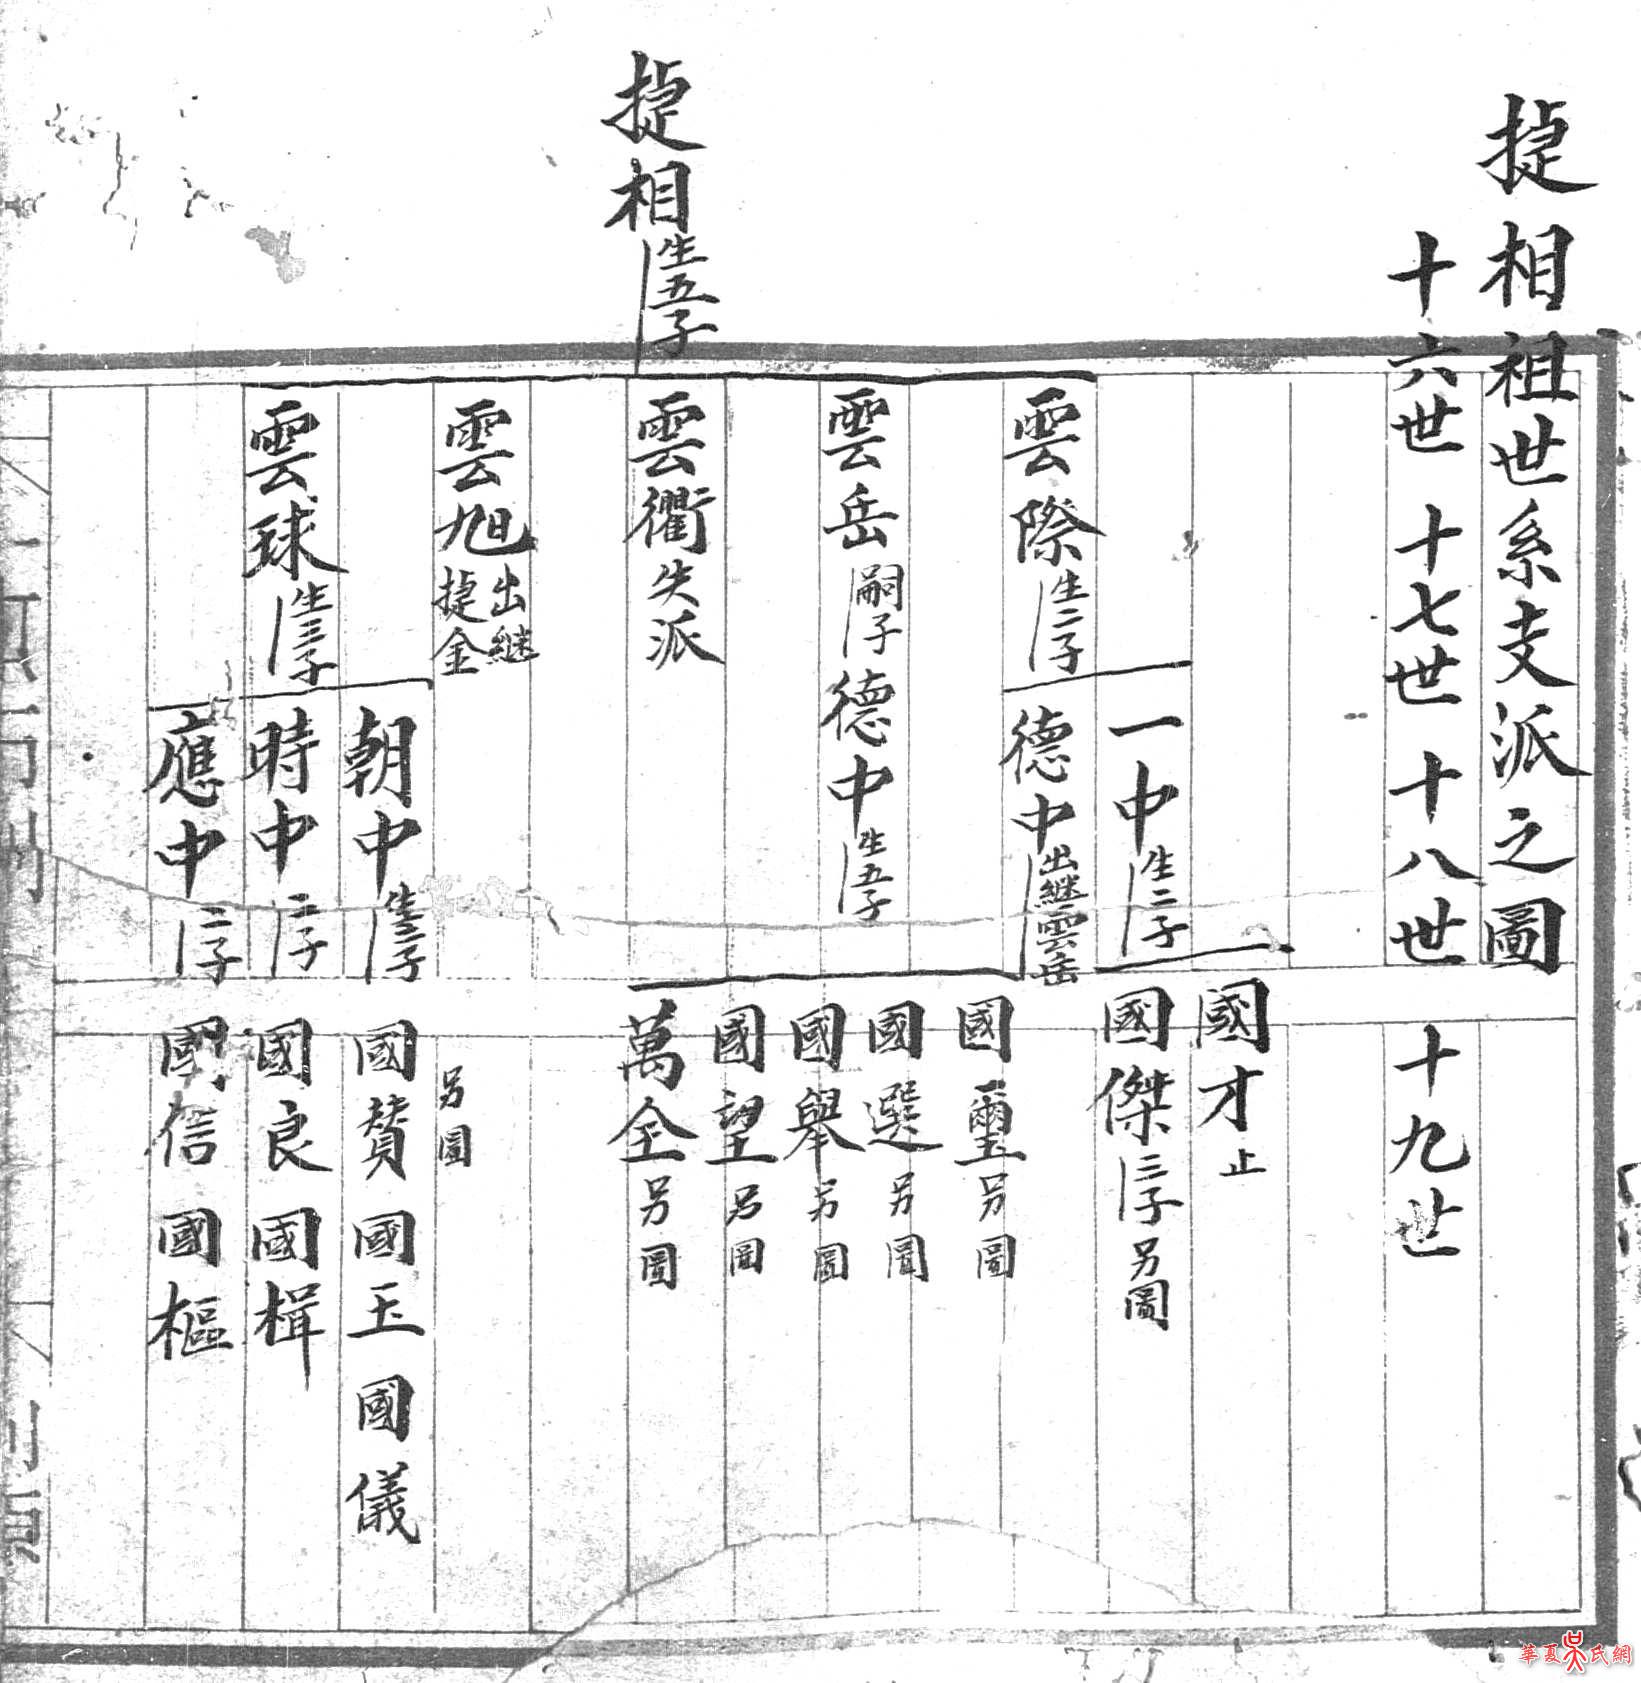 捷相祖世系支派之圖
十六世 十七世 十八世 十九世
捷相 生五子
雲際 生二子
一中 生二子
國才 止
國傑 三子 另圖
德中 出繼雲岳
雲岳 嗣子 德中 生五子
國璽 另圖
國選 另圖
國舉 另圖
國望 另圖
萬全 另圖
雲衢 失派
雲旭 出繼捷金
雲球 生三子
另圖
朝中 生三子 國贊 國玉 國儀
時中 二子 國良 國楫
應中 二子 國信 國樞
華夏吳氏網